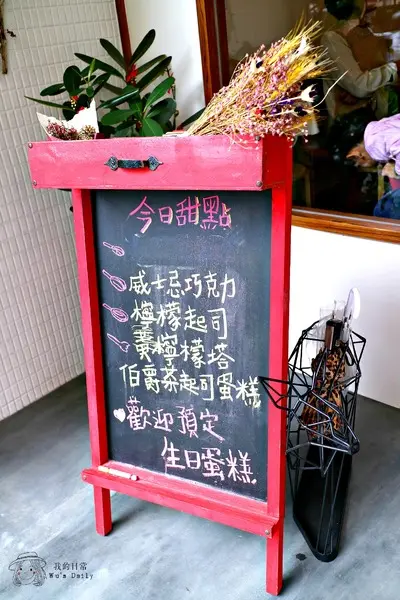 今日甜點
威士忌巧克力
檸檬起司
羹檸檬塔
伯爵茶起司蛋糕
歡迎預定
生日蛋糕
我的日常
Wu's Daily